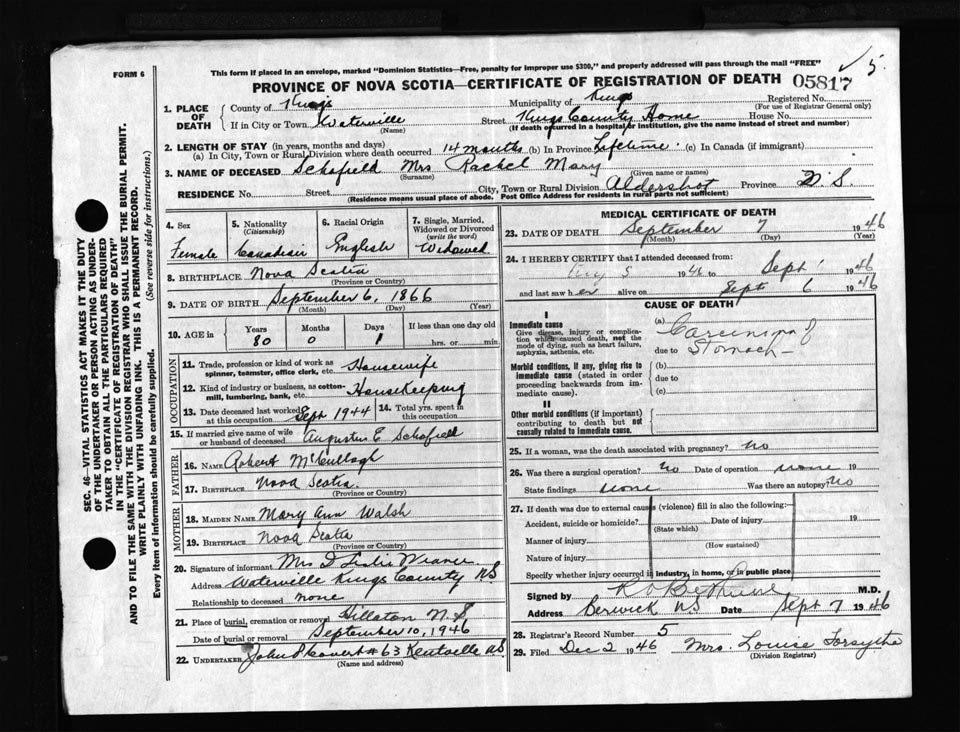 This form if placed in an envelope, marked "Dominion Statistics—Free, penalty for improper use $300," and properly addressed will pass through the mail "FREE"
FORM 6
PROVINCE OF NOVA SCOTIA—CERTIFICATE OF REGISTRATION OF DEATH 05817 5.
1. PLACE OF DEATH
County of Kings Municipality of Kings Registered No.
(For use of Registrar General only)
If in City or Town Waterville Street Kings County Home House No.
(Name) (If death occurred in a hospital or institution, give the name instead of street and number)
2. LENGTH OF STAY (in years, months and days)
(a) In City, Town or Rural Division where death occurred 14 months (b) In Province Lifetime (c) In Canada (if immigrant)
3. NAME OF DECEASED Schofield Mrs Rachel Mary
(Surname) (Given name or names)
RESIDENCE No. Street City, Town or Rural Division Aldershot Province N.S.
(Residence means usual place of abode. Post Office Address for residents in rural parts not sufficient)
4. Sex
Female
5. Nationality
(Citizenship)
Canadian
6. Racial Origin
English
7. Single, Married, Widowed or Divorced
(write the word)
Widowed
8. BIRTHPLACE Nova Scotia
(Province or Country)
9. DATE OF BIRTH September 6, 1866
(Month) (Day) (Year)
10. AGE in Years Months Days If less than one day old
80 0 1 hrs. or min.
OCCUPATION
11. Trade, profession or kind of work as spinner, teamster, office clerk, etc. Housewife
12. Kind of industry or business, as cotton-mill, lumbering, bank, etc. HouseKeeping
13. Date deceased last worked at this occupation Sept 1944 14. Total yrs. spent in this occupation
15. If married give name of wife or husband of deceased Augustus E Schofield
FATHER
16. NAME Robert McCullagh
17. BIRTHPLACE Nova Scotia
(Province or Country)
MOTHER
18. MAIDEN NAME Mary Ann Walsh
19. BIRTHPLACE Nova Scotia
(Province or Country)
20. Signature of informant Mrs D Leslie Weaver
Address Waterville Kings County NS
Relationship to deceased none
21. Place of burial, cremation or removal Hillaton N.S
Date of burial or removal September 10, 1946
22. UNDERTAKER John #63 Kentville N.S.
(Name and address)
MEDICAL CERTIFICATE OF DEATH
23. DATE OF DEATH September 7 1946
(Month) (Day) (Year)
24. I HEREBY CERTIFY that I attended deceased from:
Aug 5 1946 to Sept 1946
and last saw her alive on Sept 6 1946
CAUSE OF DEATH
I
Immediate cause
Give disease, injury or complication which caused death, not the mode of dying, such as heart failure, asphyxia, asthenia, etc.
(a) Carcinoma of
due to Stomach
Morbid conditions, if any, giving rise to immediate cause (stated in order proceeding backwards from immediate cause).
(b)
due to
(c)
II
Other morbid conditions (if important) contributing to death but not causally related to immediate cause.
25. If a woman, was the death associated with pregnancy? No
26. Was there a surgical operation? No Date of operation none 19
State findings none Was there an autopsy? No
27. If death was due to external causes (violence) fill in also the following:
Accident, suicide or homicide? Date of injury 19
(State which)
Manner of injury
(How sustained)
Nature of injury
Specify whether injury occurred in industry, in home, or in public place
Signed by M.D.
Address Berwick NS Date Sept 7 1946
28. Registrar's Record Number 5
29. Filed Dec 2 1946 Mrs. Louise Forsythe
(Division Registrar)
SEC. 46—VITAL STATISTICS ACT MAKES IT THE DUTY
OF THE UNDERTAKER OR PERSON ACTING AS UNDER-
TAKER TO OBTAIN ALL THE PARTICULARS REQUIRED
IN THE "CERTIFICATE OF REGISTRATION OF DEATH"
AND TO FILE THE SAME WITH THE DIVISION REGISTRAR WHO SHALL ISSUE THE BURIAL PERMIT.
WRITE PLAINLY WITH UNFADING INK. THIS IS A PERMANENT RECORD.
Every item of information should be carefully supplied. (See reverse side for instructions.)